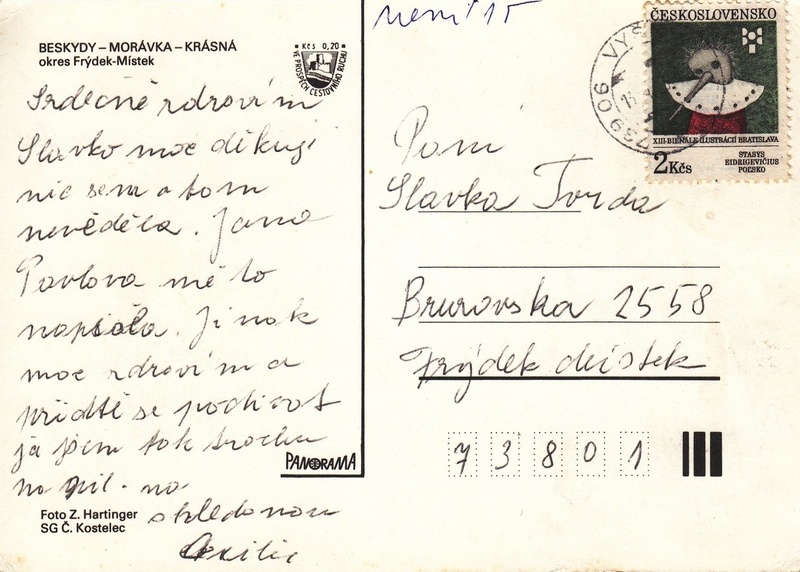 není 15
BESKYDY – MORÁVKA – KRÁSNÁ
okres Frýdek-Místek
Kčs 0,20
VE PROSPĚCH CESTOVNÍHO RUCHU
Srdečně zdravím
Slavko moc děkuji
nic sem o tom
nevěděla. Jana
Pavlova mě to
napsala. Jinak
moc zdravím a
přidtě se podivat
já jsem tak trochu
na
na
shledanou
PANORAMA
Foto Z. Hartinger
SG Č. Kostelec
ČESKOSLOVENSKO
XIII·BIENALE ILUSTRÁCIÍ BRATISLAVA
2 Kčs
STASYS
EIDRIGEVIČIUS
POĽSKO
739 06 VYŠ
Paní
Slavka Tvrda
Bruzovska 2558
Frýdek Místek
7 3 8 0 1